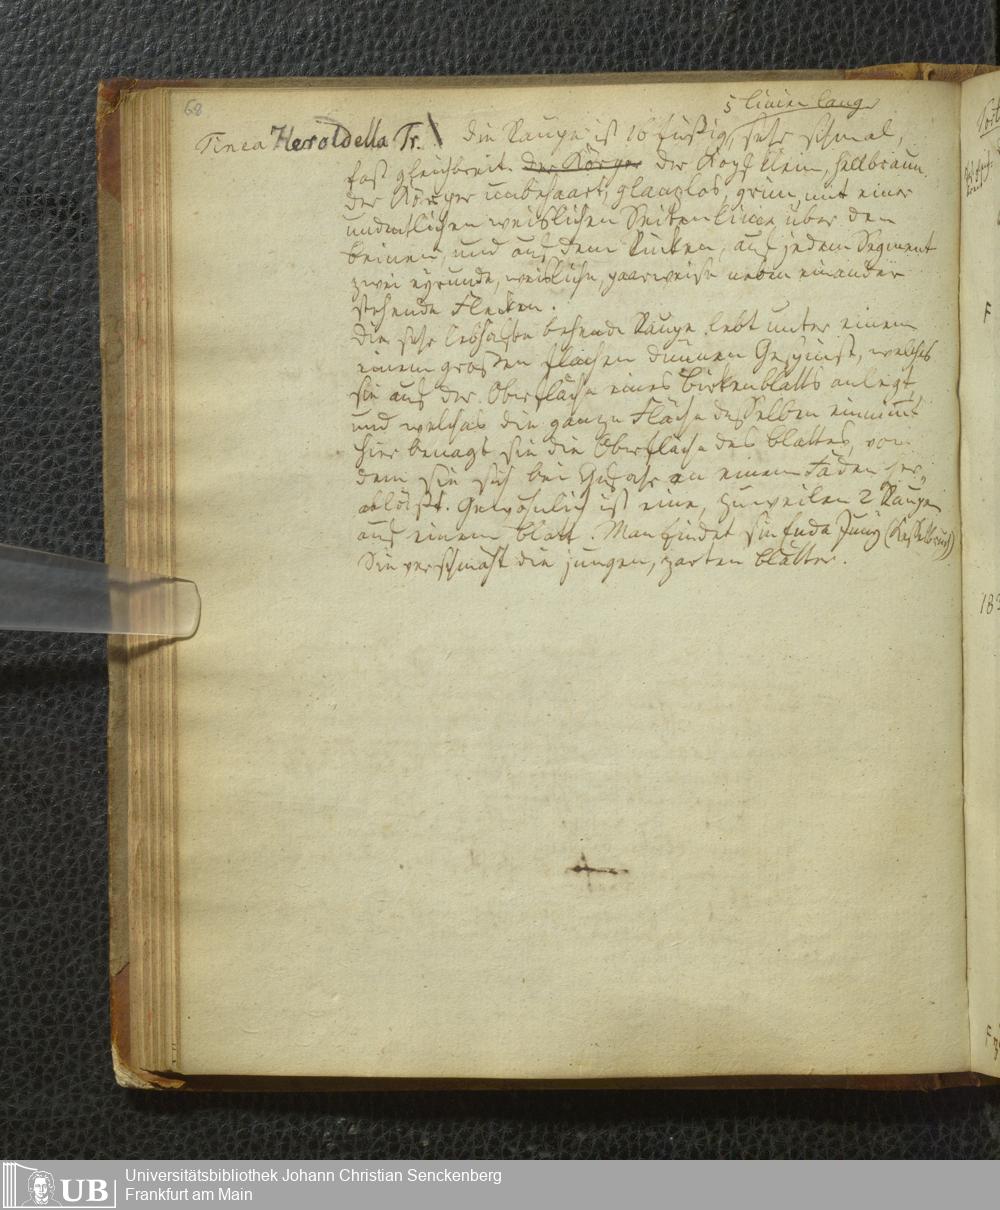 68
5 linien lang,
Tinea Heroldella Tr. Die Raupe ist 16 füßig, sehr schmal,
fast gleichbreit. der Körper der Kopf klein, hellbraun.
der Körper unbehaart, glanzlos, grün, mit einer
undeutlichen weislichen Seitenlinie über den
beinen, und auf dem Rücken, auf jedem Segment
zwei eyrunde, weisliche, paarweise neben einander
stehende Flecken.
Die sehr lebhafte behende Raupe lebt unter einem
einem grossen flachen dünnen Gespinst, welches
sie auf der Oberfläche eines Birkenblatts anlegt,
und welches die ganze Fläche desselben einnimt
hier benagt sie die Oberfläche des blattes, von
dem sie sich bei Gefahr an einem Faden her,
abläßt. Gewöhnlich ist eine, zuweilen 2 Raupen
auf einem blatt. Man findet sie Ende Juny (Kesselbruch)
Sie verschmäht die jungen, zarten blätter.
F
183
Universitätsbibliothek Johann Christian Senckenberg
Frankfurt am Main
UB